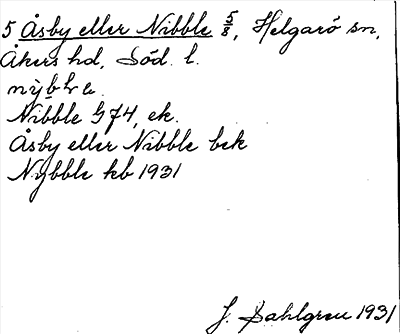 5 Åsby eller Nibble 5/8, Helgarö sn,
Åkers hd, Söd. l.
Nibble G 74, ek.
Åsby eller Nibble bek
Nybble kb 1931
J. Sahlgren 1931